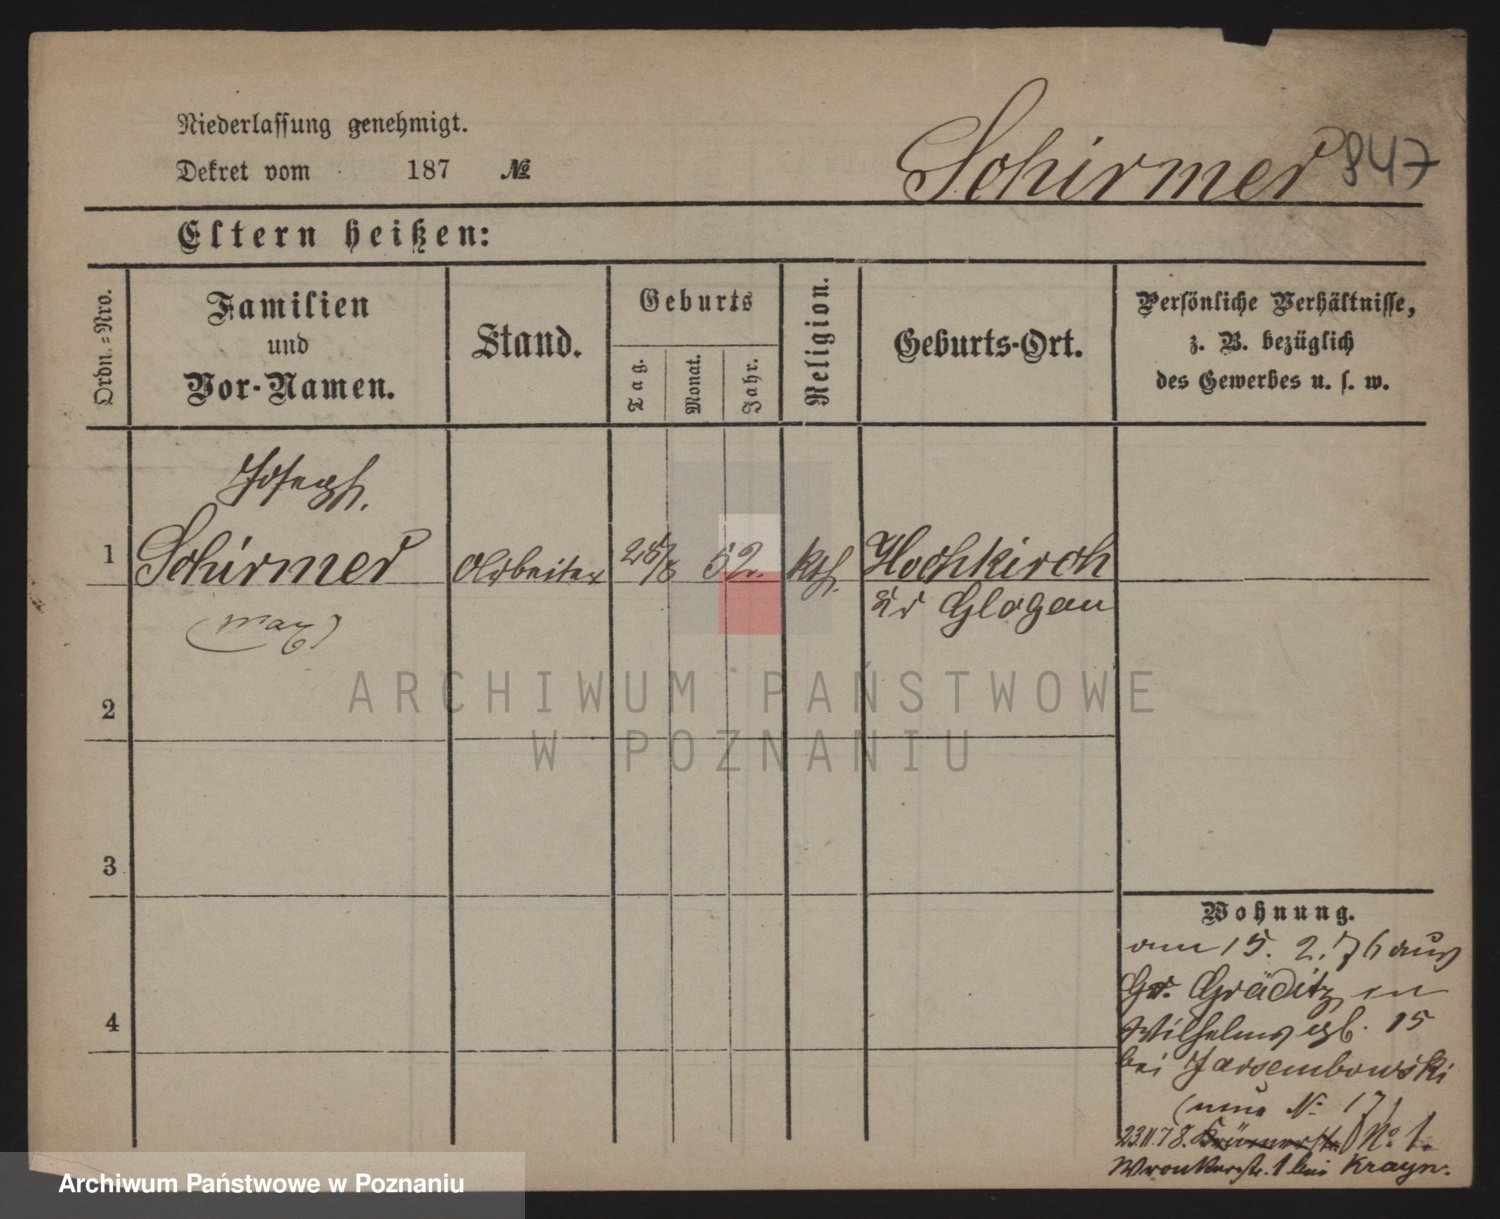 Niederlassung genehmigt.
Dekret vom 187 №
Schirmer 847
Eltern heißen:
Ordn.=Nro.
Familien
und
Vor-Namen.
Stand.
Geburts
Tag.
Monat.
Jahr.
Religion.
Geburts-Ort.
Persönliche Verhältnisse,
z. B. bezüglich
des Gewerbes u. s. w.
Joseph
1 Schirmer Arbeiter 25/8 52. kth. Hochkirch
Kr Glogau
2
3
4
ARCHIWUM PAŃSTWOWE
W POZNANIU
Wohnung.
am 15. 2. 76 aus
Gr. Gräditz in
Wilhelmspl. 15
bei Jarsembowski
(neue № 17)
23.11.78. № 1.
Wronkerstr. 1 bei Krayn.
Archiwum Państwowe w Poznaniu